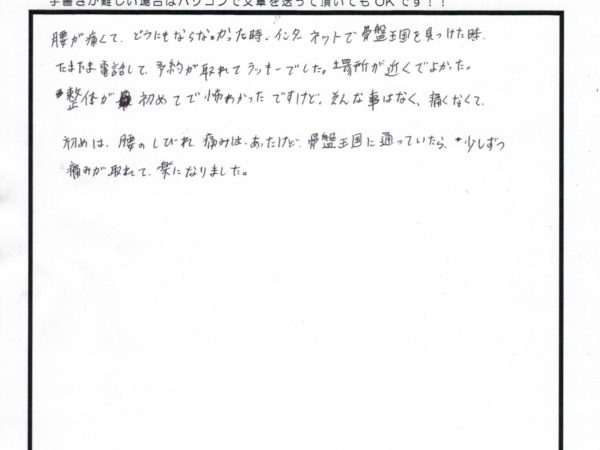 手書きが難しい場合はパソコンで文章を送って頂いてもOKです！！
腰が痛くて、どうにもならなかった時、インターネットで骨盤王国を見つけた時、
たまたま電話して、予約が取れてラッキーでした。場所が近くでよかった。
整体が初めてで怖わかったですけど、そんな事はなく、痛くなくて、
初めは、腰のしびれ痛みは、あったけど、骨盤王国に通っていたら、少しずつ
痛みが取れて、楽になりました。